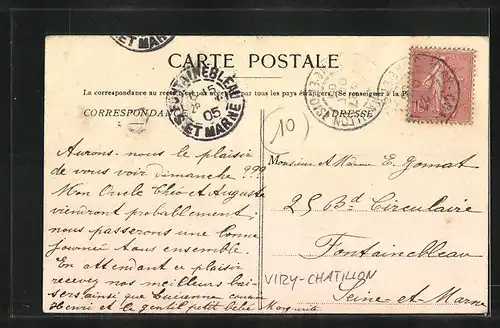 ET MARNE
CARTE POSTALE
La correspondance au recto n'est pas acceptée par tous pays étrangers (Se renseigner à la
FONTAINEBLEAU
05
SEINE ET MARNE
CORRESPONDANCE
ADRESSE
10
Aurons-nous le plaisir
de vous voir dimanche ???
Mon Oncle Théo et Augusta
viendront probablement,
nous passerons une bonne
journée tous ensemble.
En attendant ce plaisir
recevez nos meilleurs bai-
sers ainsi que Lucienne cousin
Henri et le gentil petit bébé Marguerite
Monsieur et Madame E. Gomat
25 Bd Circulaire
Fontainebleau
VIRY-CHATILLON
Seine et Marne